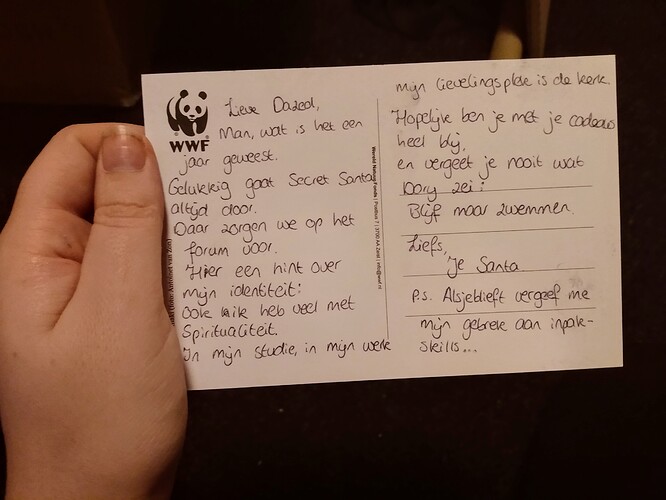 WWF
Lieve Dazed,
Man, wat is het een
jaar geweest.
Gelukkig gaat Secret Santa
altijd door.
Daar zorgen we op het
forum voor.
Hier een hint over
mijn identiteit:
Ook ik heb veel met
Spiritualiteit.
In mijn studie, in mijn werk
mijn lievelingsplek is de kerk.
Hopelijk ben je met je cadeaus
heel blij,
en vergeet je nooit wat
Dory zei:
Blijf maar zwemmen.
Liefs,
Je Santa
P.S. Alsjeblieft vergeef me
mijn gebrek aan inpak-
skills...
Wereld Natuur Fonds / Postbus 7 / 3700 AA Zeist / info@wwf.nl